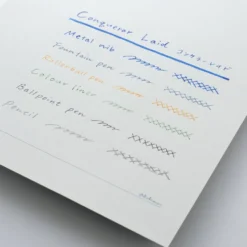 Conqueror Laid コンケラー・レイド
Metal nib
Fountain pen
Rollerball pen
Colour liner
Ballpoint pen
Pencil